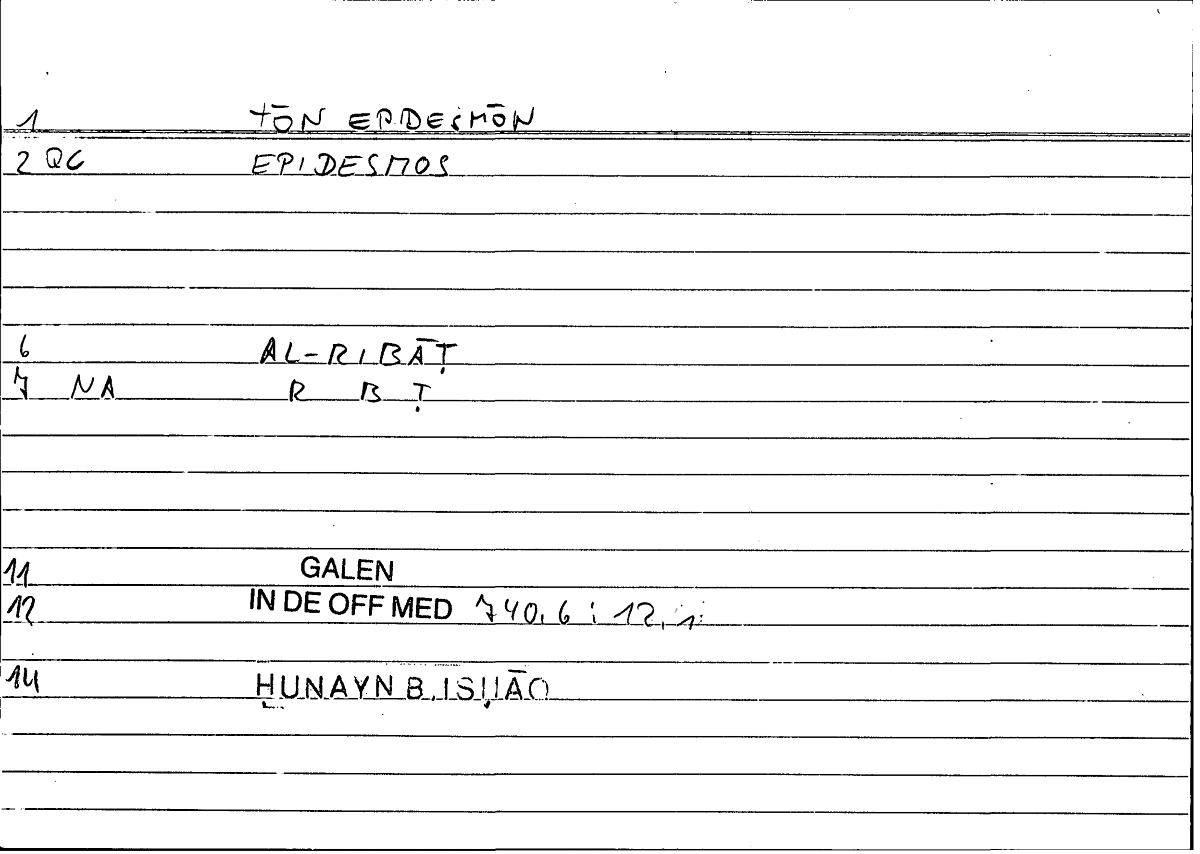 1 tŌN EPIDESMŌN
2 QC EPIDESMOS
6 AL-RIBĀṬ
7 NA R B Ṭ
11 GALEN
12 IN DE OFF MED 740,6 ; 12,1
14 ḤUNAYN B. ISḤĀQ